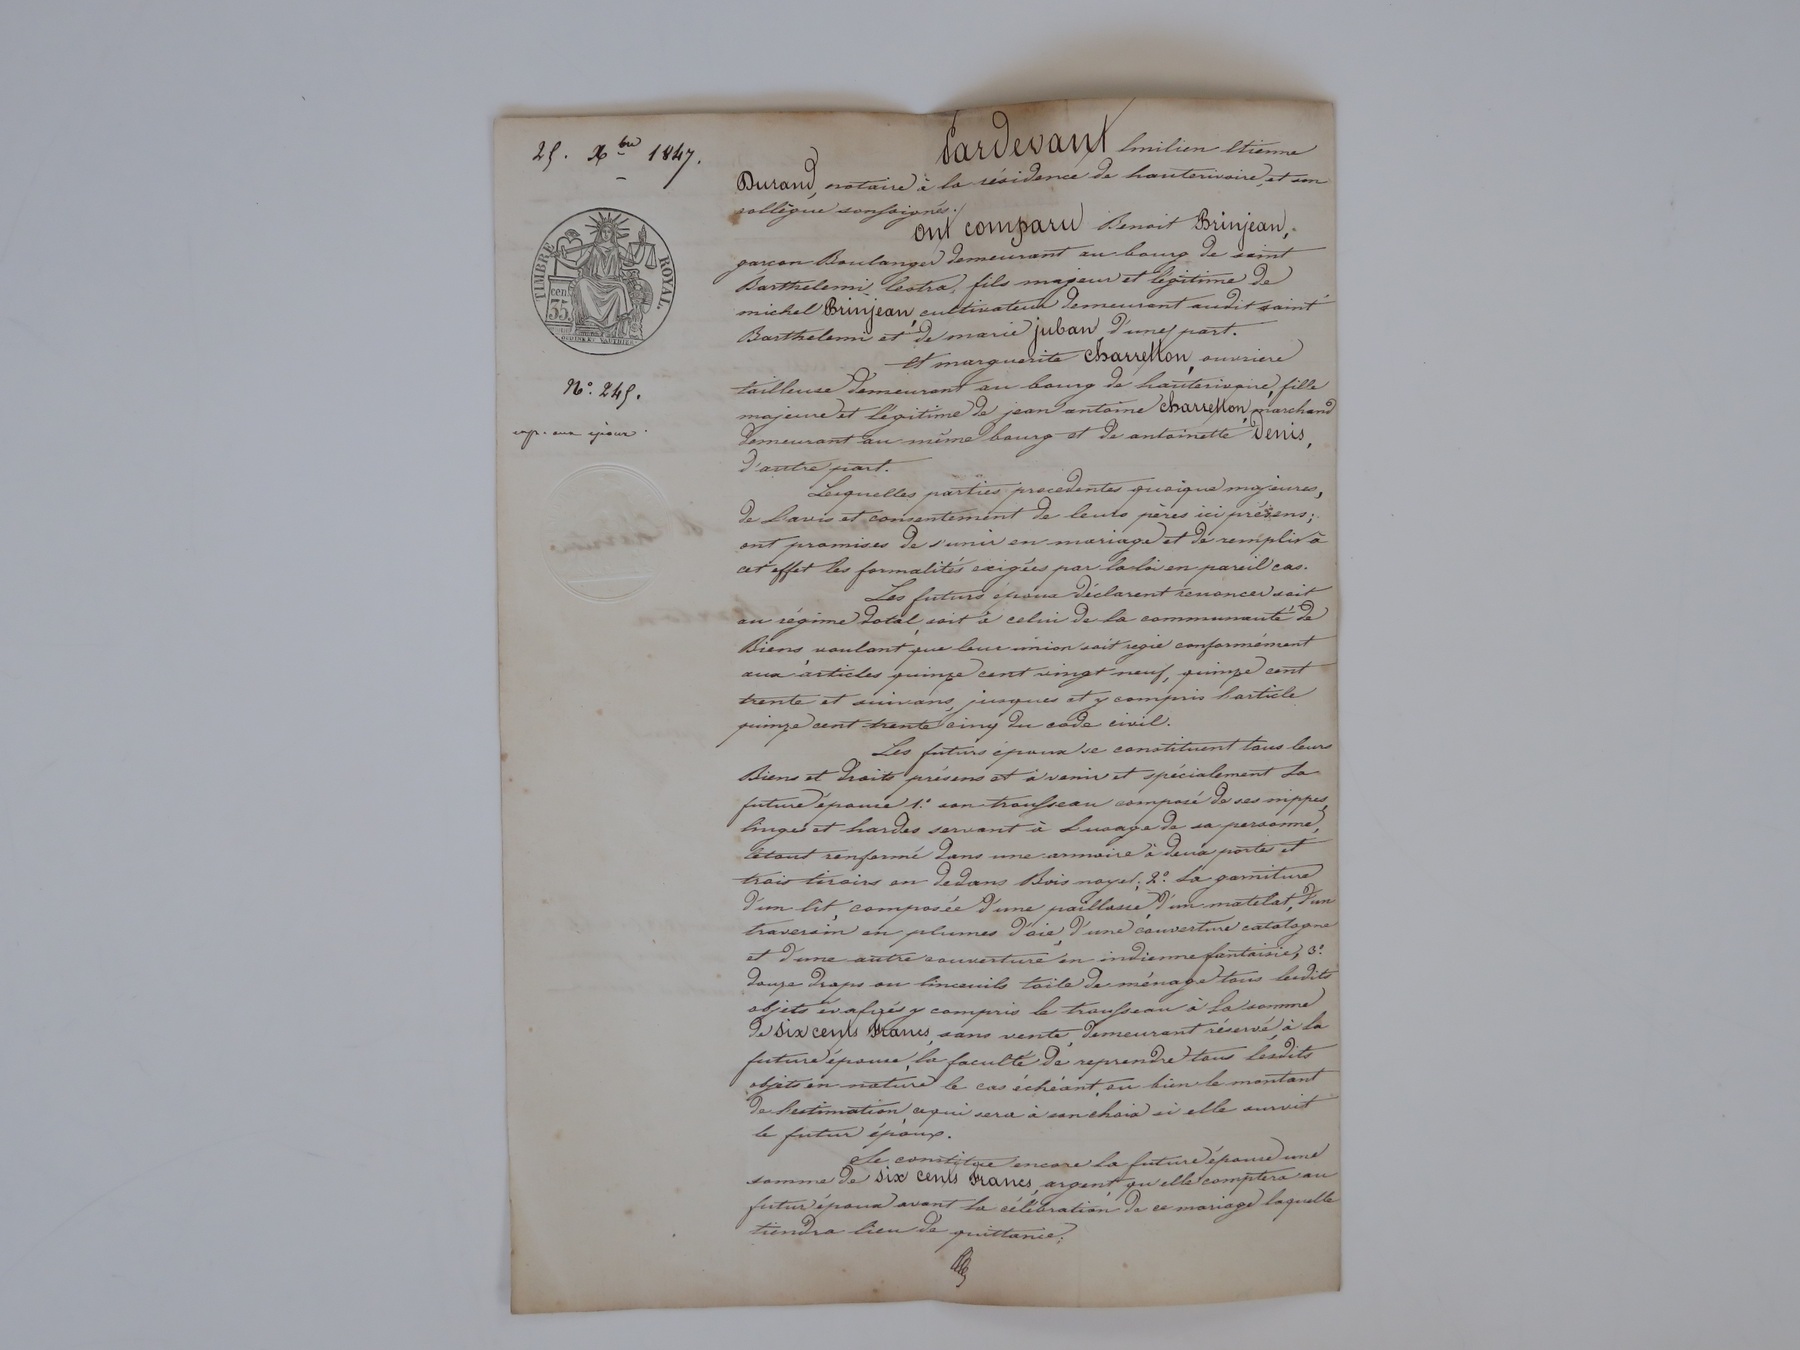 25. Xbre 1847.
TIMBRE ROYAL.
cen.
35.
N.° 245.
exp. aux époux.
Pardevant Emilien Etienne
Durand, notaire à la résidence de hauterivoire, et son
collègue soussignés./
ont comparu Benoit Brinjean,
garcon Boulanger demeurant au bourg de saint
Barthelemi lestra, fils majeur et légitime de
michel Brinjean, cultivateur demeurant audit saint
Barthelemi et de marie juban d'une part.
Et marguerite charretton, ouvriere
tailleuse demeurant au bourg de hauterivoire, fille
majeure et légitime de jean antoine charretton, marchand
demeurant au même bourg et de antoinette Denis,
d'autre part.
Lesquelles parties procedentes quoique majeures,
de l'avis et consentement de leurs pères ici présens;
ont promises de s'unir en mariage et de remplir à
cet effet les formalités exigées par la loi en pareil cas.
Les futurs époux déclarent renoncer soit
au régime dotal, soit à celui de la communauté de
Biens voulant que leur union soit régie conformément
aux articles quinze cent vingt neuf, quinze cent
trente et suivans, jusques et y compris l'article
quinze cent trente cinq du code civil.
Les futurs époux se constituent tous leurs
Biens et droits présens et à venir et spécialement la
future épouse 1.° son trousseau composé de ses nippes,
linges et hardes servant à l'usage de sa personne,
letout renfermé dans une armoire à deux portes et
trois tiroirs en dedans Bois noyer; 2.° la garniture
d'un lit, composée d'une paillasse, d'un matelat, d'un
traversin en plumes d'oie, d'une couverture catalogne
et d'une autre couverture en indienne fantaisie; 3.°
douze draps ou linceuils toile de ménage tous lesdits
objets évalués y compris le trousseau à la somme
de six cents francs, sans vente, demeurant réservé, à la
future épouse, la faculté de reprendre tous lesdits
objets en nature le cas échéant, ou bien le montant
de l'estimation ce qui sera à son choix si elle survit
le futur époux.
Se constitue encore la future épouse une
somme de six cents francs, argent qu'elle comptera au
futur époux avant la célébration de ce mariage laquelle
tiendra lieu de quittance;